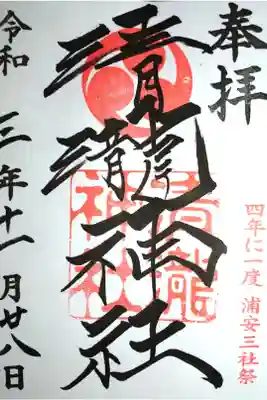 奉拝
四年に一度 浦安三社祭
清瀧神社
令和 三年十一月廿八日